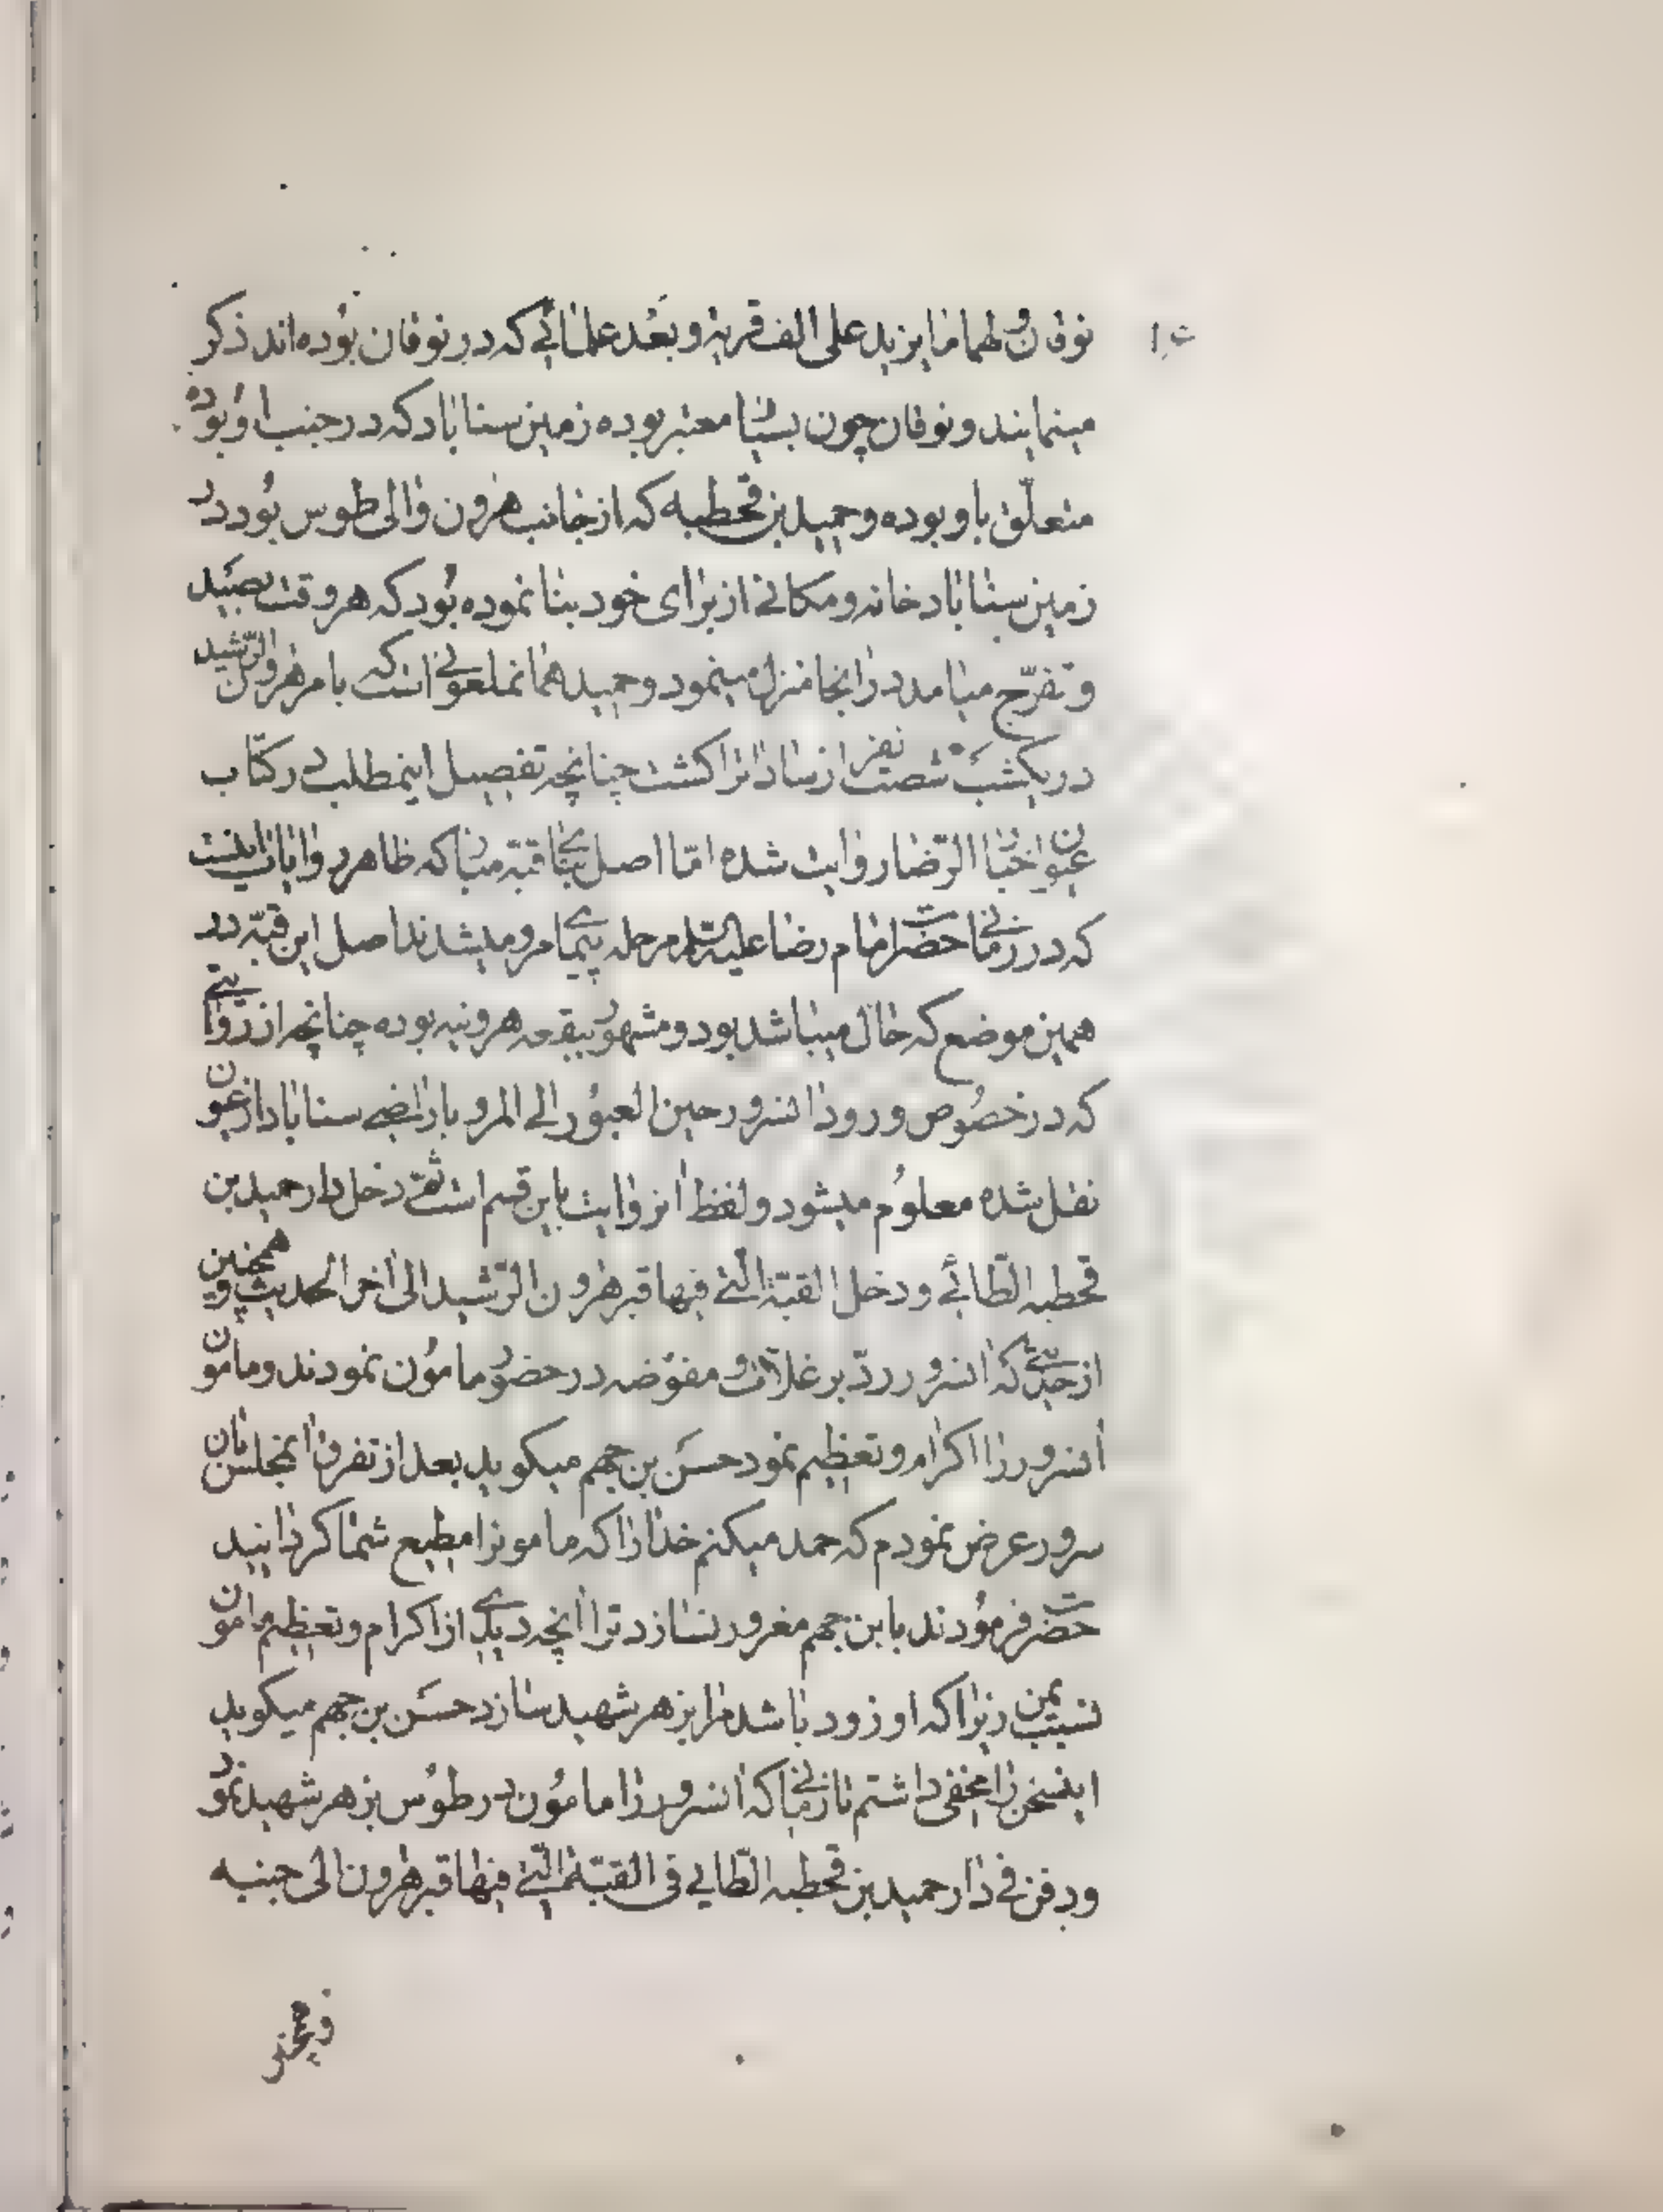 نوقان و لهما ما یزید علی الف قریة و بعد علمائی که در نوقان بوده‌اند ذکر
مینمایند و نوقان چون بسیار معتبر بوده زمین سناباد که در جنب او بوده
متعلّق باو بوده و حمید بن قحطبه که از جانب هرون والی طوس بود در
زمین سناباد خانه و مکانی از برای خود بنا نموده بود که هر وقت بصید
و تفرّج میامد در انجا منزل مینمود و حمید همانملعونی است که بامر هرون الرّشید
در یکشب شصت نفر از سادات را کشت چنانچه تفصیل اینمطلب در کتاب
عیون اخبار الرّضا روایت شده امّا اصل بنای قبّه مبارکه ظاهر روایات اینست
که در زمانی حضرت امام رضا علیه السلام مرحله پیمای مرو میشدند اصل این قبّه در
همین موضع که حال میباشد بود و مشهور ببقعه هرونیه بوده چنانچه از روایتی
که در خصوص ورود انسرور حین العبور الی المرو باراضی سناباد از عیون
نقل شده معلوم میشود و لفظ انروایت باین قسم است ثمّ دخل دار حمید بن
قحطبه الطّائی و دخل القبّة الّتی فیها قبر هرون الرّشید الی اخر الحدیث و همچنین
از حدیثی که انسرور ردّ بر غلات و مفوّضه در حضور مامون نمودند و مامون
انسرور را اکرام و تعظیم نمود حسن بن جهم میکوید بعد از تفرق انمجلس بان
سرور عرض نمودم که حمد میکنم خدا را که مامونرا مطیع شما کردانید
حضرت فرمودند یا بن جهم مغرور نسازد ترا انچه دیدی از اکرام و تعظیم مامون
نسبت بمن زیرا که او زود باشد مرا بزهر شهید سازد حسن بن جهم میکوید
اینسخن را مخفی داشتم تا زمانی که انسرور را مامون در طوس بزهر شهید نمود
و دفن فی دار حمید بن قحطبه الطّایی فی القبّة الّتی فیها قبر هرون الی جنبه
و همچنین